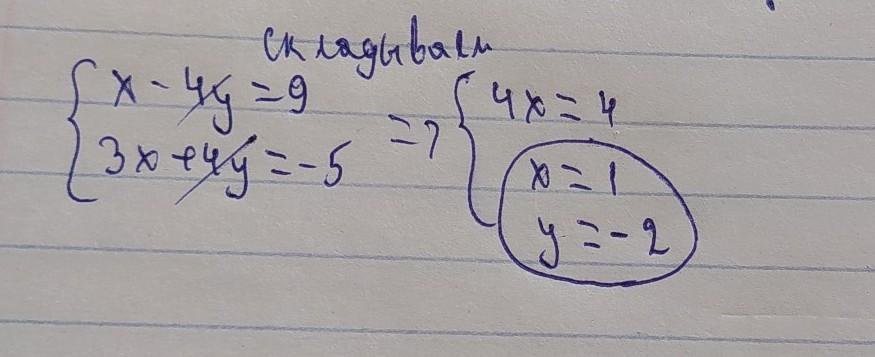 складываем
x - 4y = 9
3x + 4y = -5
=> 4x = 4
x = 1
y = -2